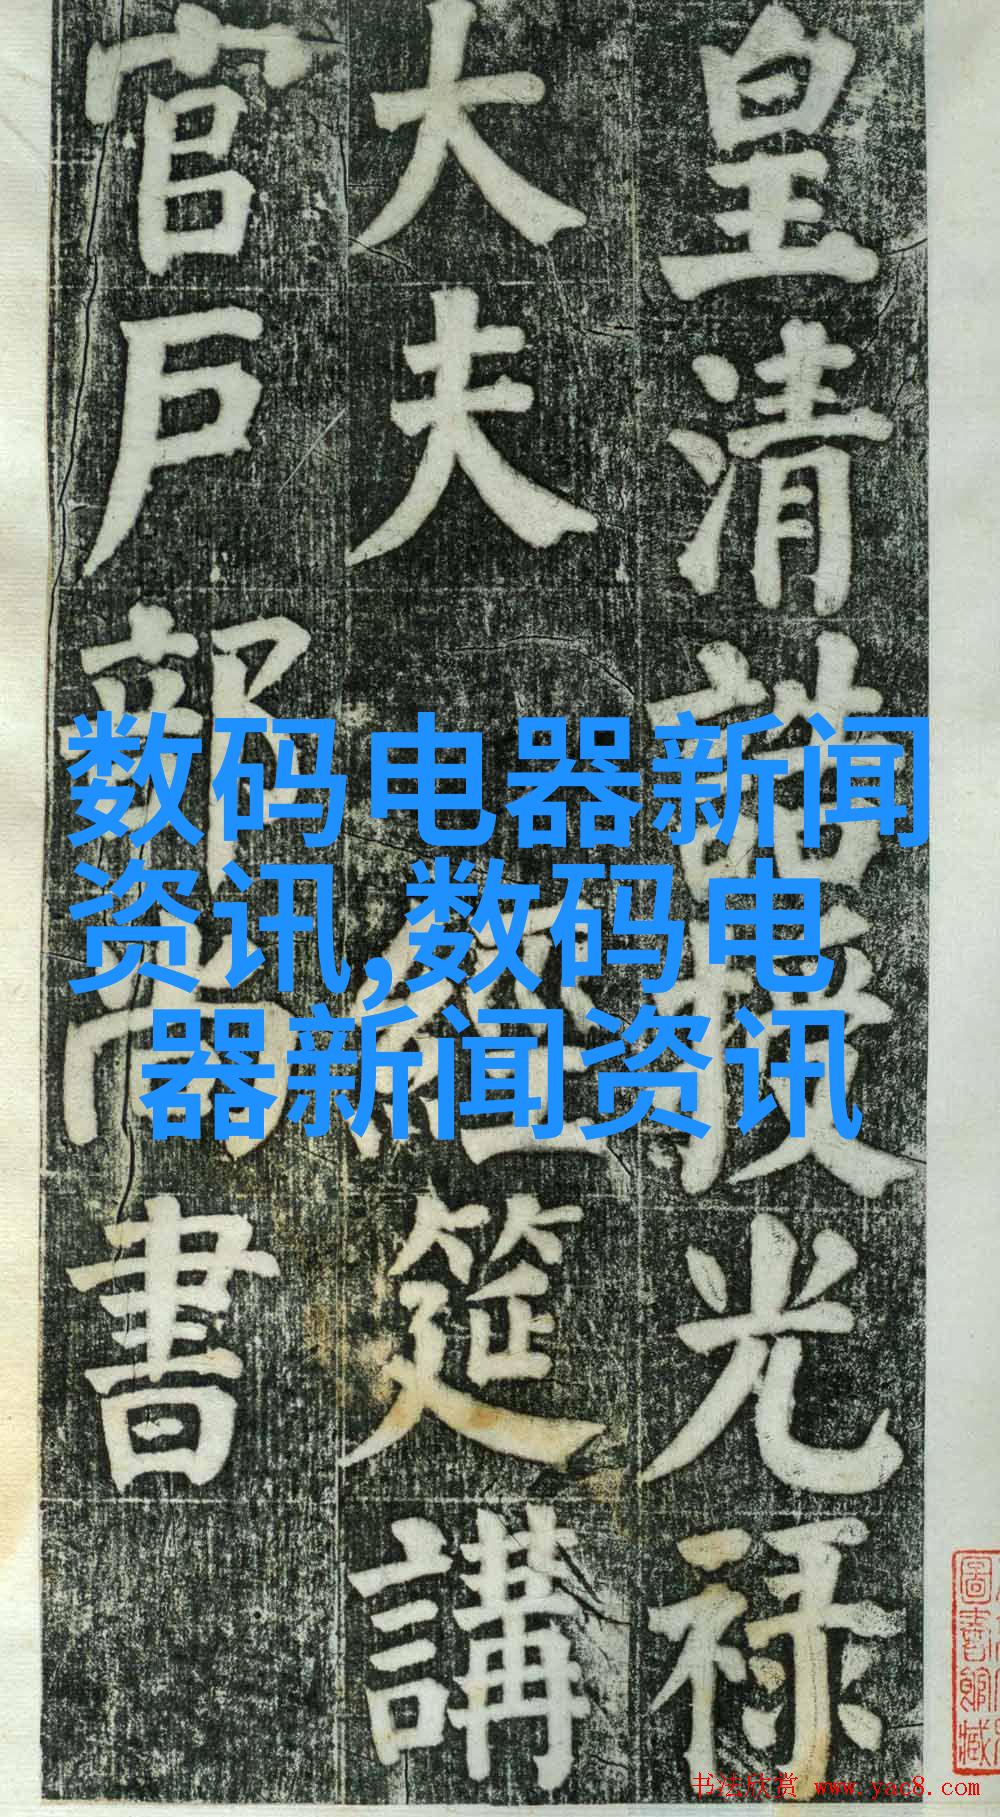 皇清誥授光祿
大夫 經筵講
官戶部尚書
数码电器新闻
资讯,数码电
器新闻资讯
圖書館藏
书法欣赏 www.yac8.com